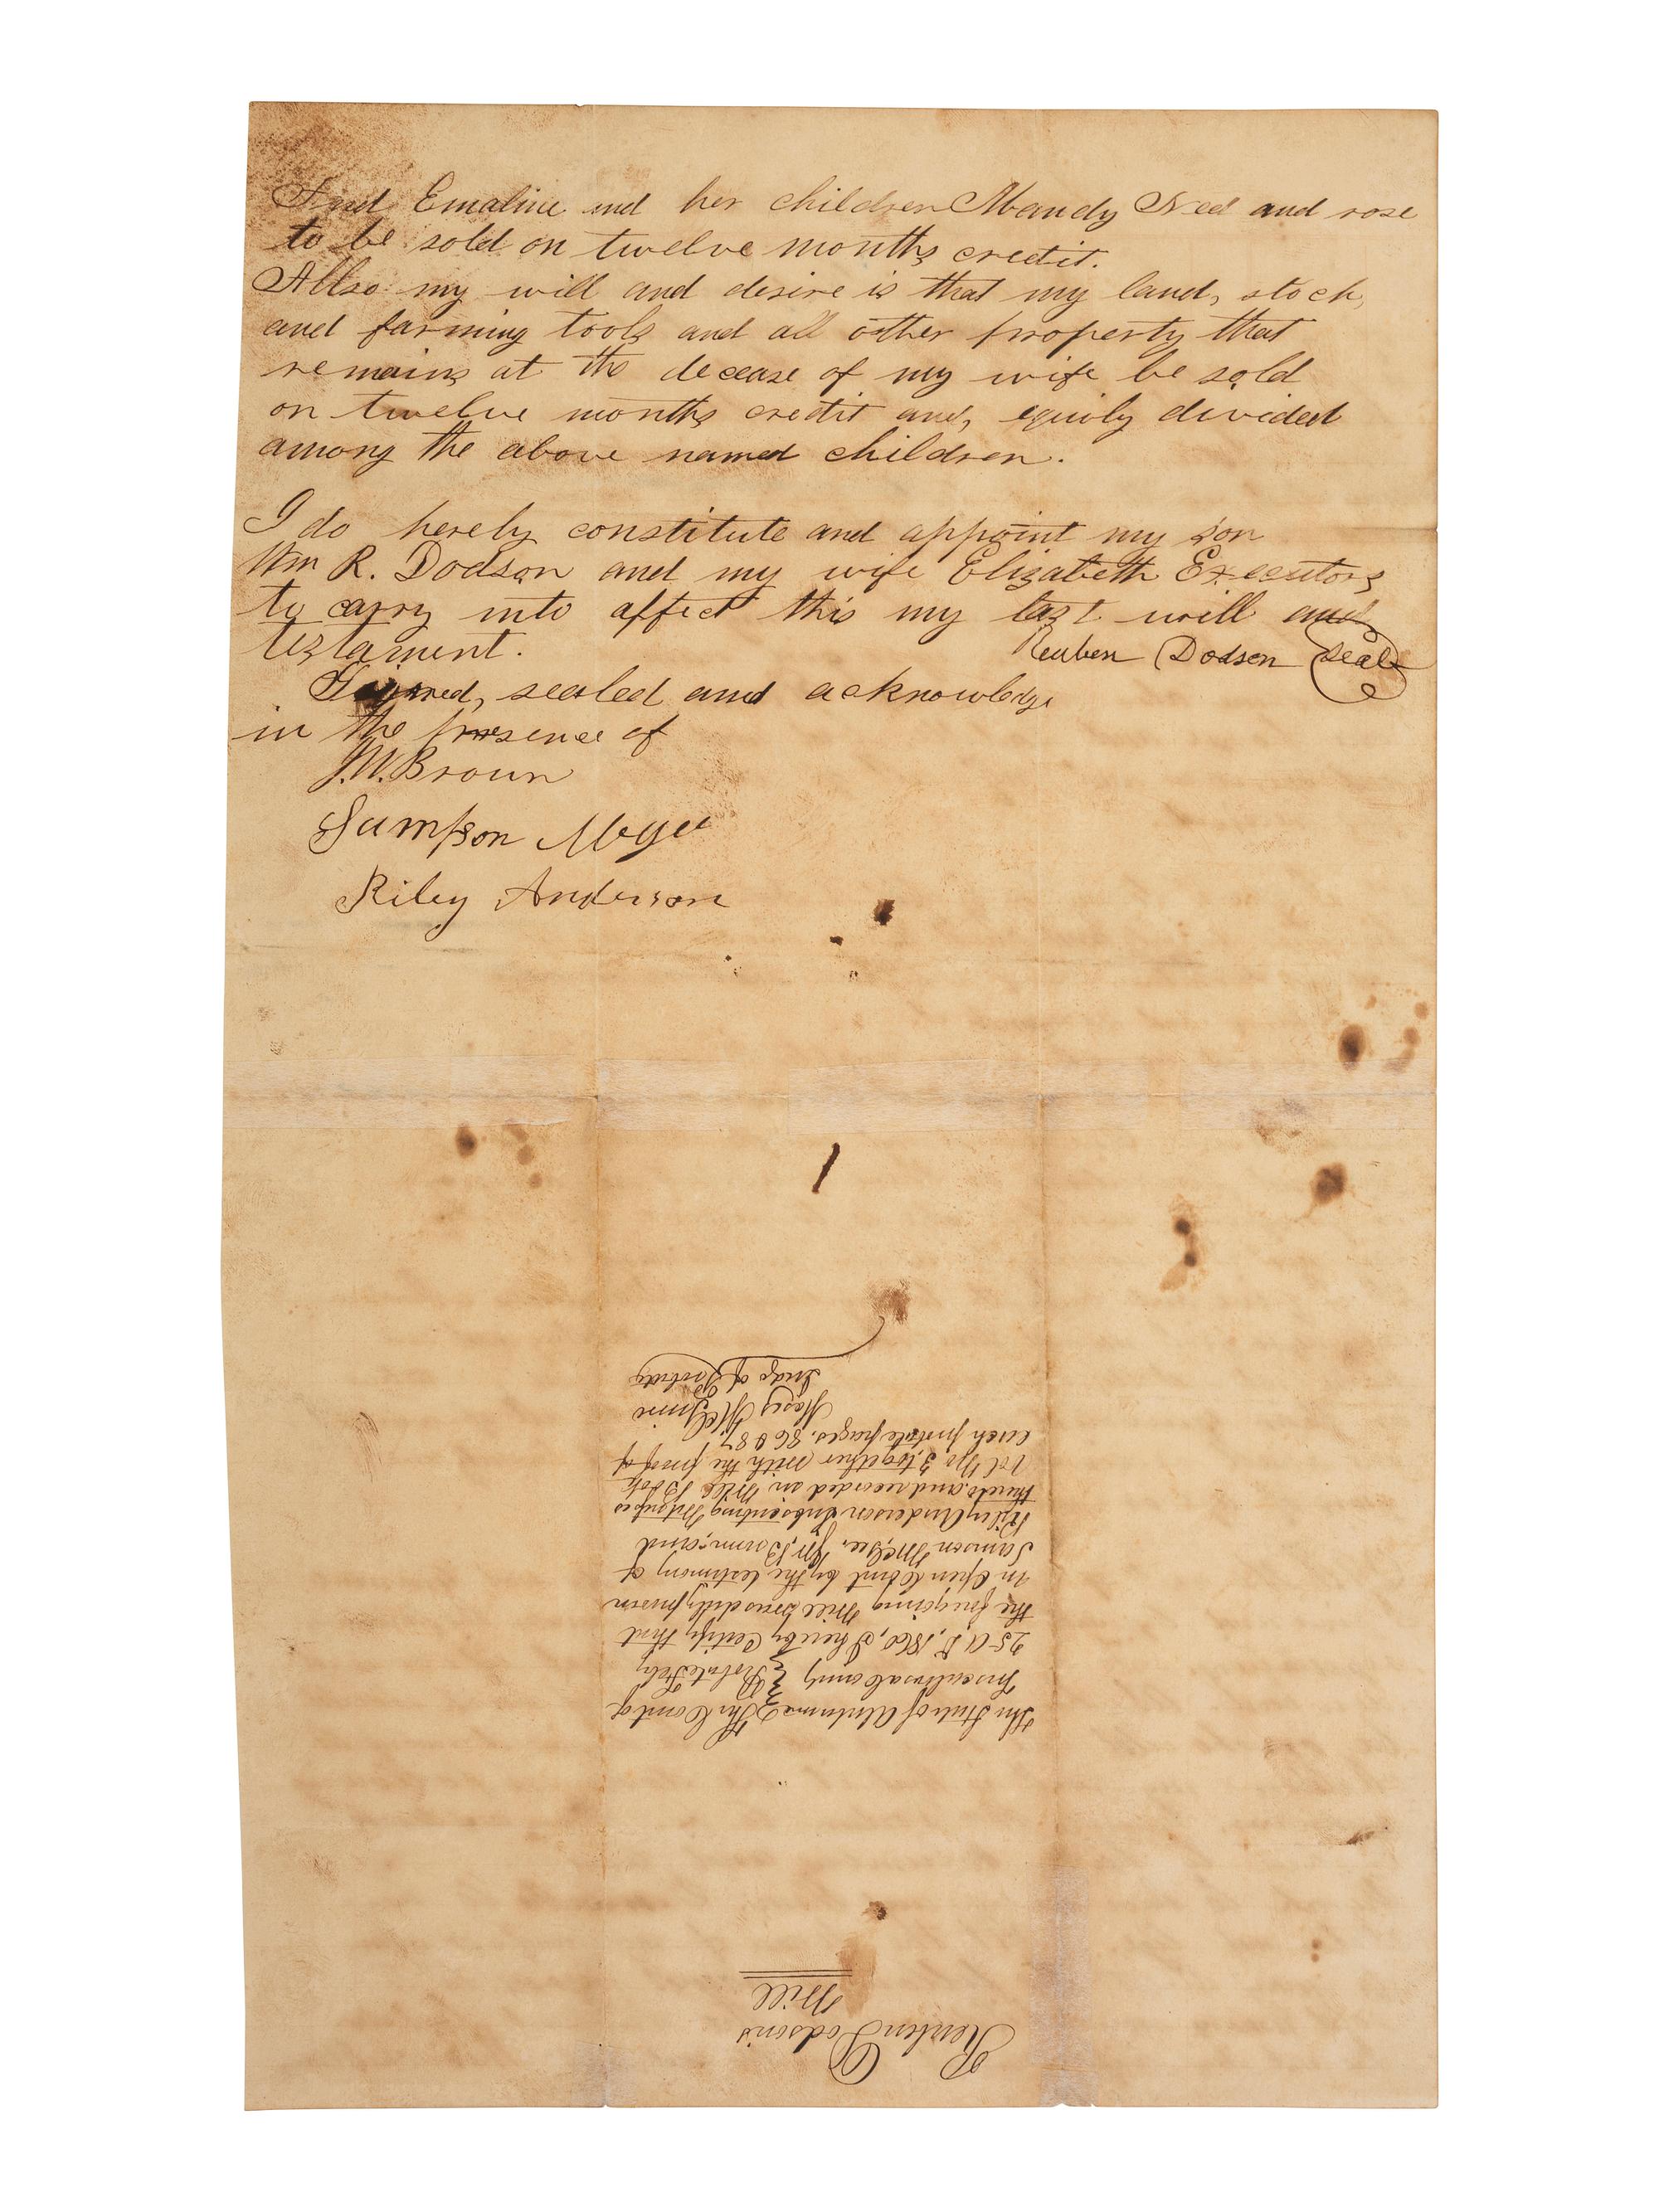 And Emaline and her children Mandy Ned and rose
to be sold on twelve months credit.
Allso my will and desire is that my land, stock,
and farming tools and all other property that
remains at the decease of my wife be sold
on twelve months credit and, equily divided
among the above named children.
I do hereby constitute and appoint my son
Wm R. Dodson and my wife Elizabeth Executors
to carry into affect this my last will and
testament.
Reuben Dodson Seal
Signed, sealed and acknowledge
in the presence of
J.W. Brown
Sampson Mcgee
Riley Anderson
The State of Alabama The Court of
Tuscaloosa County Probate Feby
25 A.D. 1860, I hereby Certify that
the foregoing Will was duly proven
in Open Court by the testimony of
Samson McGee, J.W. Brown, and
Riley Anderson Subscribing Witnesses
thereto, and recorded in Will Book
Vol No 3, together with the proof of
each probate pages. 86 & 87
McGuire
Judge of Probate
Reuben Dodson's
Will